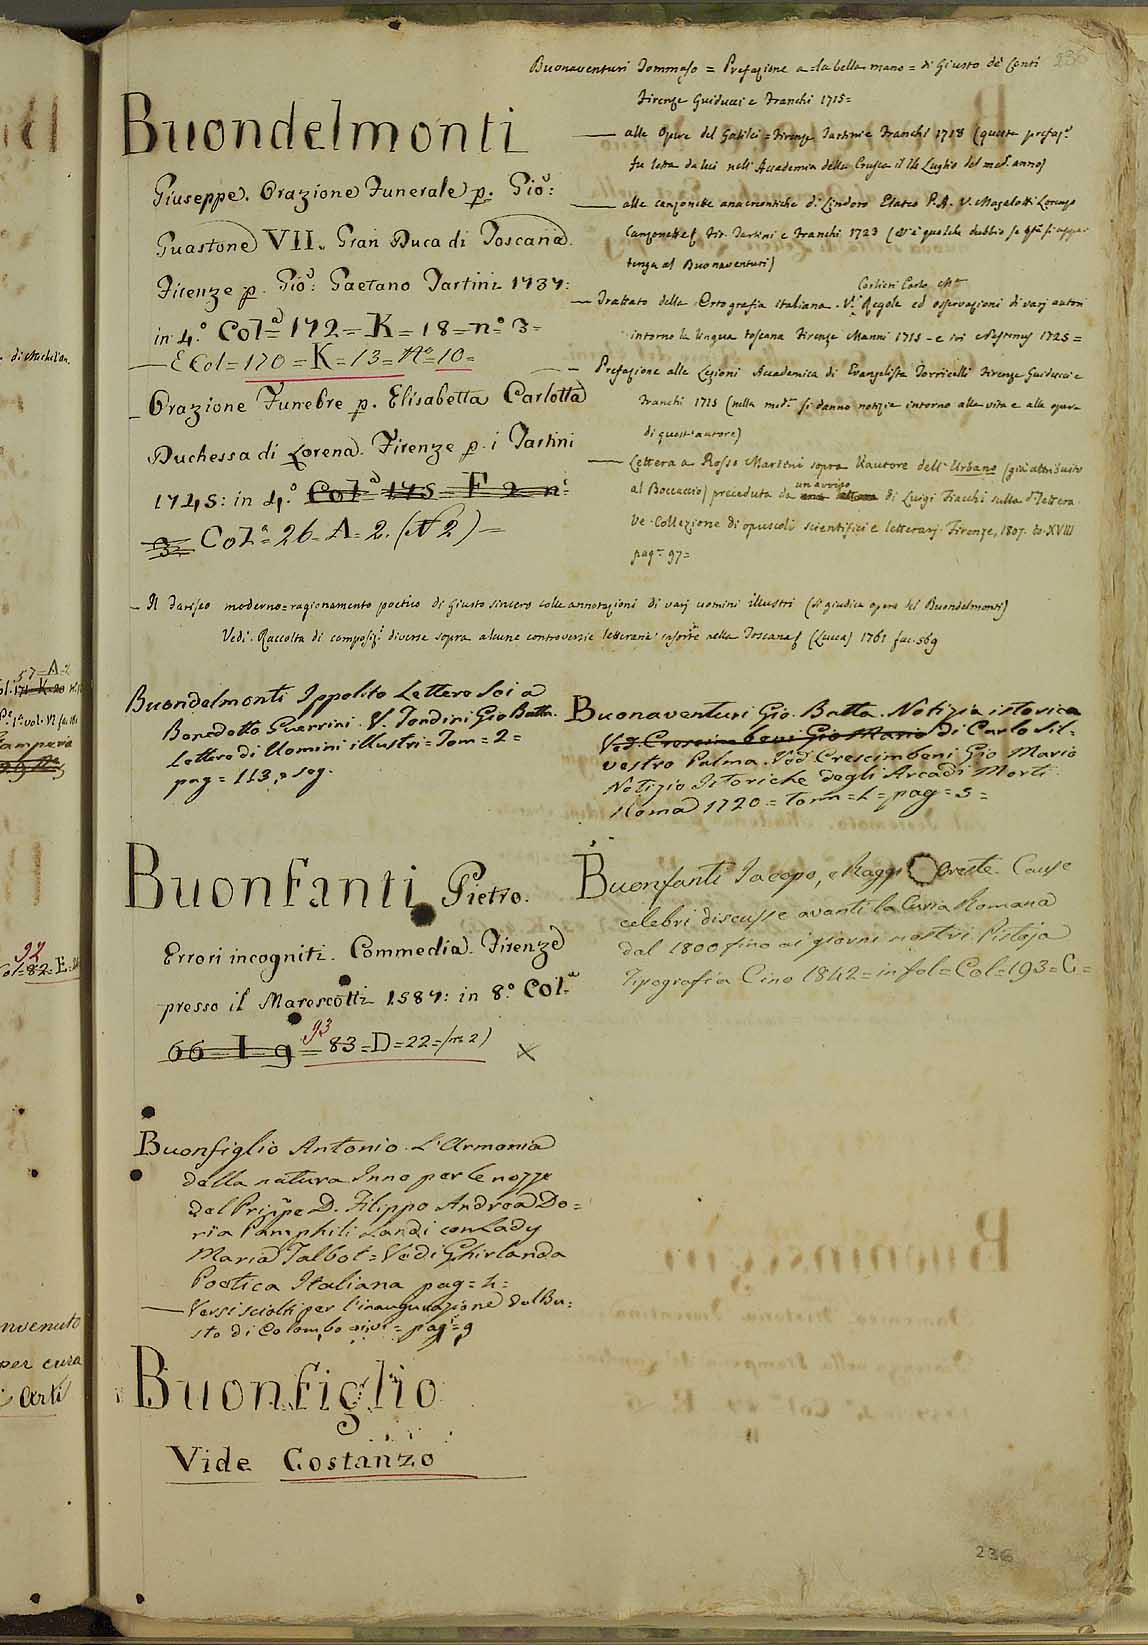 236
Buondelmonti
Giuseppe. Orazione Funerale p. Gio:
Guastone VII. Gran Duca di Toscana.
Firenze p. Gio: Gaetano Tartini 1737:
in 4.° Col.a 172=K=18=n.° 3=
— E Col=170=K=13=N.°10=
Orazione Funebre p. Elisabetta Carlotta
Duchessa di Lorena. Firenze p. i Tartini
1745: in 4.° Col.a 175 = F 2 n.°
3= Col.a=26=A=2.(N 2)=
Buonaventuri Tommaso = Prefazione a =la bella mano= di Giusto de Conti
Firenze Guiducci e Franchi 1715=
— alle Opere del Galilei = Firenze Tartini e Franchi 1718 (queste prefaz.i
fu letta da lui nell'Accademia della Crusca il 14 Luglio del med.° anno)
— alle canzonette anacreontiche di Lindoro Elateo P.A. V. Magalotti Lorenzo
Canzonette Fir. Tartini e Franchi 1723 (v'è qualche dubbio se
tenga al Buonaventuri)
Carlieri Carlo
— Trattato della Ortografia italiana. V.i Regole ed osservazioni di varj autori
intorno la lingua toscana Firenze Manni 1715 - e ivi 1725=
— Prefazione alle Lezioni Accademica di Evangelista Torricelli Firenze Guiducci e
Franchi 1715 (nella med.a si danno notizie intorno alla vita e alle opere
di quest'autore)
— Lettera a Rosso Martini sopra l'autore dell'Urbano (già attribuito
un avviso
al Boccaccio) preceduta da una lettera di Luigi Fiacchi sulla d.a lettera
Ve. Collezione di opuscoli scientifici e letterarj. Firenze, 1807. to. XVIII
pag.a 97=
— Il moderno=ragionamento poetico di Giusto sincero colle annotazioni di varj uomini illustri (si giudica opera del Buondelmonti)
Vedi. Raccolta di composiz.i diverse sopra alcune controversie letterarie insorte nella Toscana (Lucca) 1761 fac. 569
Buondelmonti Ippolito Lettere Sei a
Benedetto Guerrini. V. Tondini Gio Batta.
Lettere di Uomini illustri=Tom=2=
pag=113, e seg.
Buonaventuri Gio. Batta. Notizia istorica
Ved. Crescimbeni Gio Mario di Carlo Sil-
vestro Palma. Ved. Crescimbeni Gio Mario
Notizie Istoriche degli Arcadi Morti.
Roma 1720=tom=1=pag=5=
Buonfanti Pietro.
Errori incogniti. Commedia. Firenze
presso il Marescotti 1587: in 8.° Col.a
93
66 I 9 = 83=D=22=(n.° 2)
Buonfanti Jacopo, e Raggi Oreste. Cause
celebri discusse avanti la Curia Romana
dal 1800 fino ai giorni nostri. Pistoja
Tipografia Cino 1842=in fol=Col=193=C=
Buonfiglio Antonio. L'Armonia
della natura Inno per le nozze
del Prin̄pe D. Filippo Andrea Do=
ria Pamphili Landi con Lady
Maria Talbot=Vedi Ghirlanda
Poetica Italiana pag=4=
— Versi sciolti per l'inaugurazione del Bu=
sto di Colombo =ivi=pag=9
Buonfiglio
Vide Costanzo
236
di Michel'An.
57=A=2
92
Col=82=E=
nvenuto
per cura
Arti